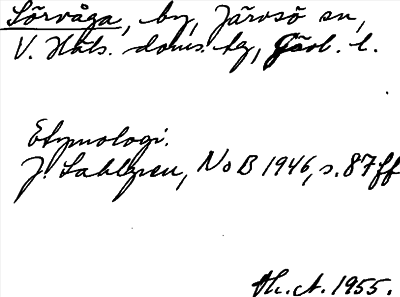 Sörvåga, by, Järvsö sn,
V. Häls. doms. tg, Gävl. l.
Etymologi.
J. Sahlgren, NoB 1946, s. 87 ff
Th. A. 1955.